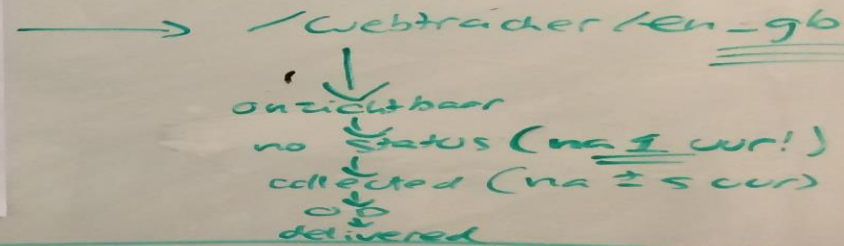 → /webtracker/en_gb
↓
onzichtbaar
↓
no status (na 1 uur!)
↓
collected (na ± 5 uur)
↓
OD
↓
delivered